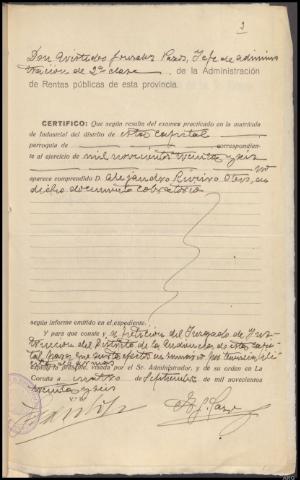 2
Don Aristides González Pazos, Jefe de adminis
tración de 2ª clase, de la Administración
de Rentas públicas de esta provincia.
CERTIFICO: Que según resulta del examen practicado en la matrícula
de Industrial del distrito de esta capital
parroquia de correspondien-
te al ejercicio de mil novecientos treinta y seis
no
aparece comprendido D. Alejandro Riveiro Otero, en
dicho documento cobratorio
según informe emitido en el expediente.
Y para que conste y a petición del Juzgado de Ins-
trucción del Distrito de la Audiencia de esta capi-
tal, para que surta efectos en sumario por tenencia ilí-
cita de armas
expido la presente, visada por el Sr. Administrador, y de su orden en La
Coruña a veintitrés de Septiembre de mil novecientos
treinta y seis
V.º B.º